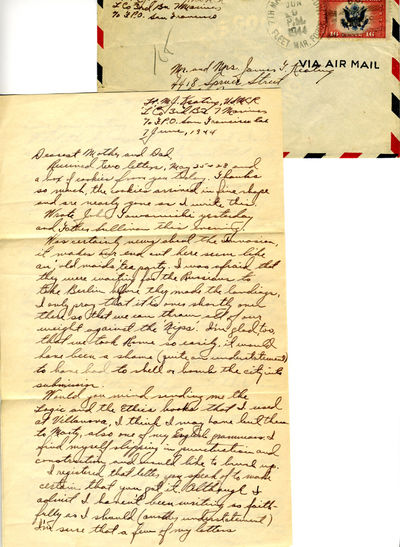 L Co 3rd Bn 7 Marines
℅ F.P.O. San Francisco
JUN
1944
16 16
Mr. and Mrs. James F. Keating
4418 Spruce Street
VIA AIR MAIL
Lt. M.J. Keating, USMCR
L Co 3rd Bn 7 Marines
℅ F.P.O. San Francisco Cal
7 June, 1944
Dearest Mother and Dad,
Received two letters, May 25 + 28 and
a box of cookies from you today. Thanks
so much, the cookies arrived in fine shape
and are nearly gone as I write this.
Wrote yesterday
and Father Sullivan this evening.
Was certainly news about the Invasion,
it makes our end out here seem like
an 'old maids' tea party. I was afraid that
they were waiting for the Russians to
take Berlin before they made the landings,
I only pray that it is over shortly over
there so that we can throw all of our
weight against the 'Nips'. I'm glad, too,
that we took Rome so easily, it would
have been a shame (quite an understatement)
to have had to shell or bomb the city into
submission.
Would you mind sending me the
Logic and the Ethics books that I used
at Villanova, I think I may have lent them
to Marty, also one of my English grammars. I
find myself slipping in punctuation and
construction and would like to brush up.
I registered that letter you speak of to make
certain that you got it. Although I
admit I haven't been writing as faith-
fully as I should (another understatement)
I'm sure that a few of my letters